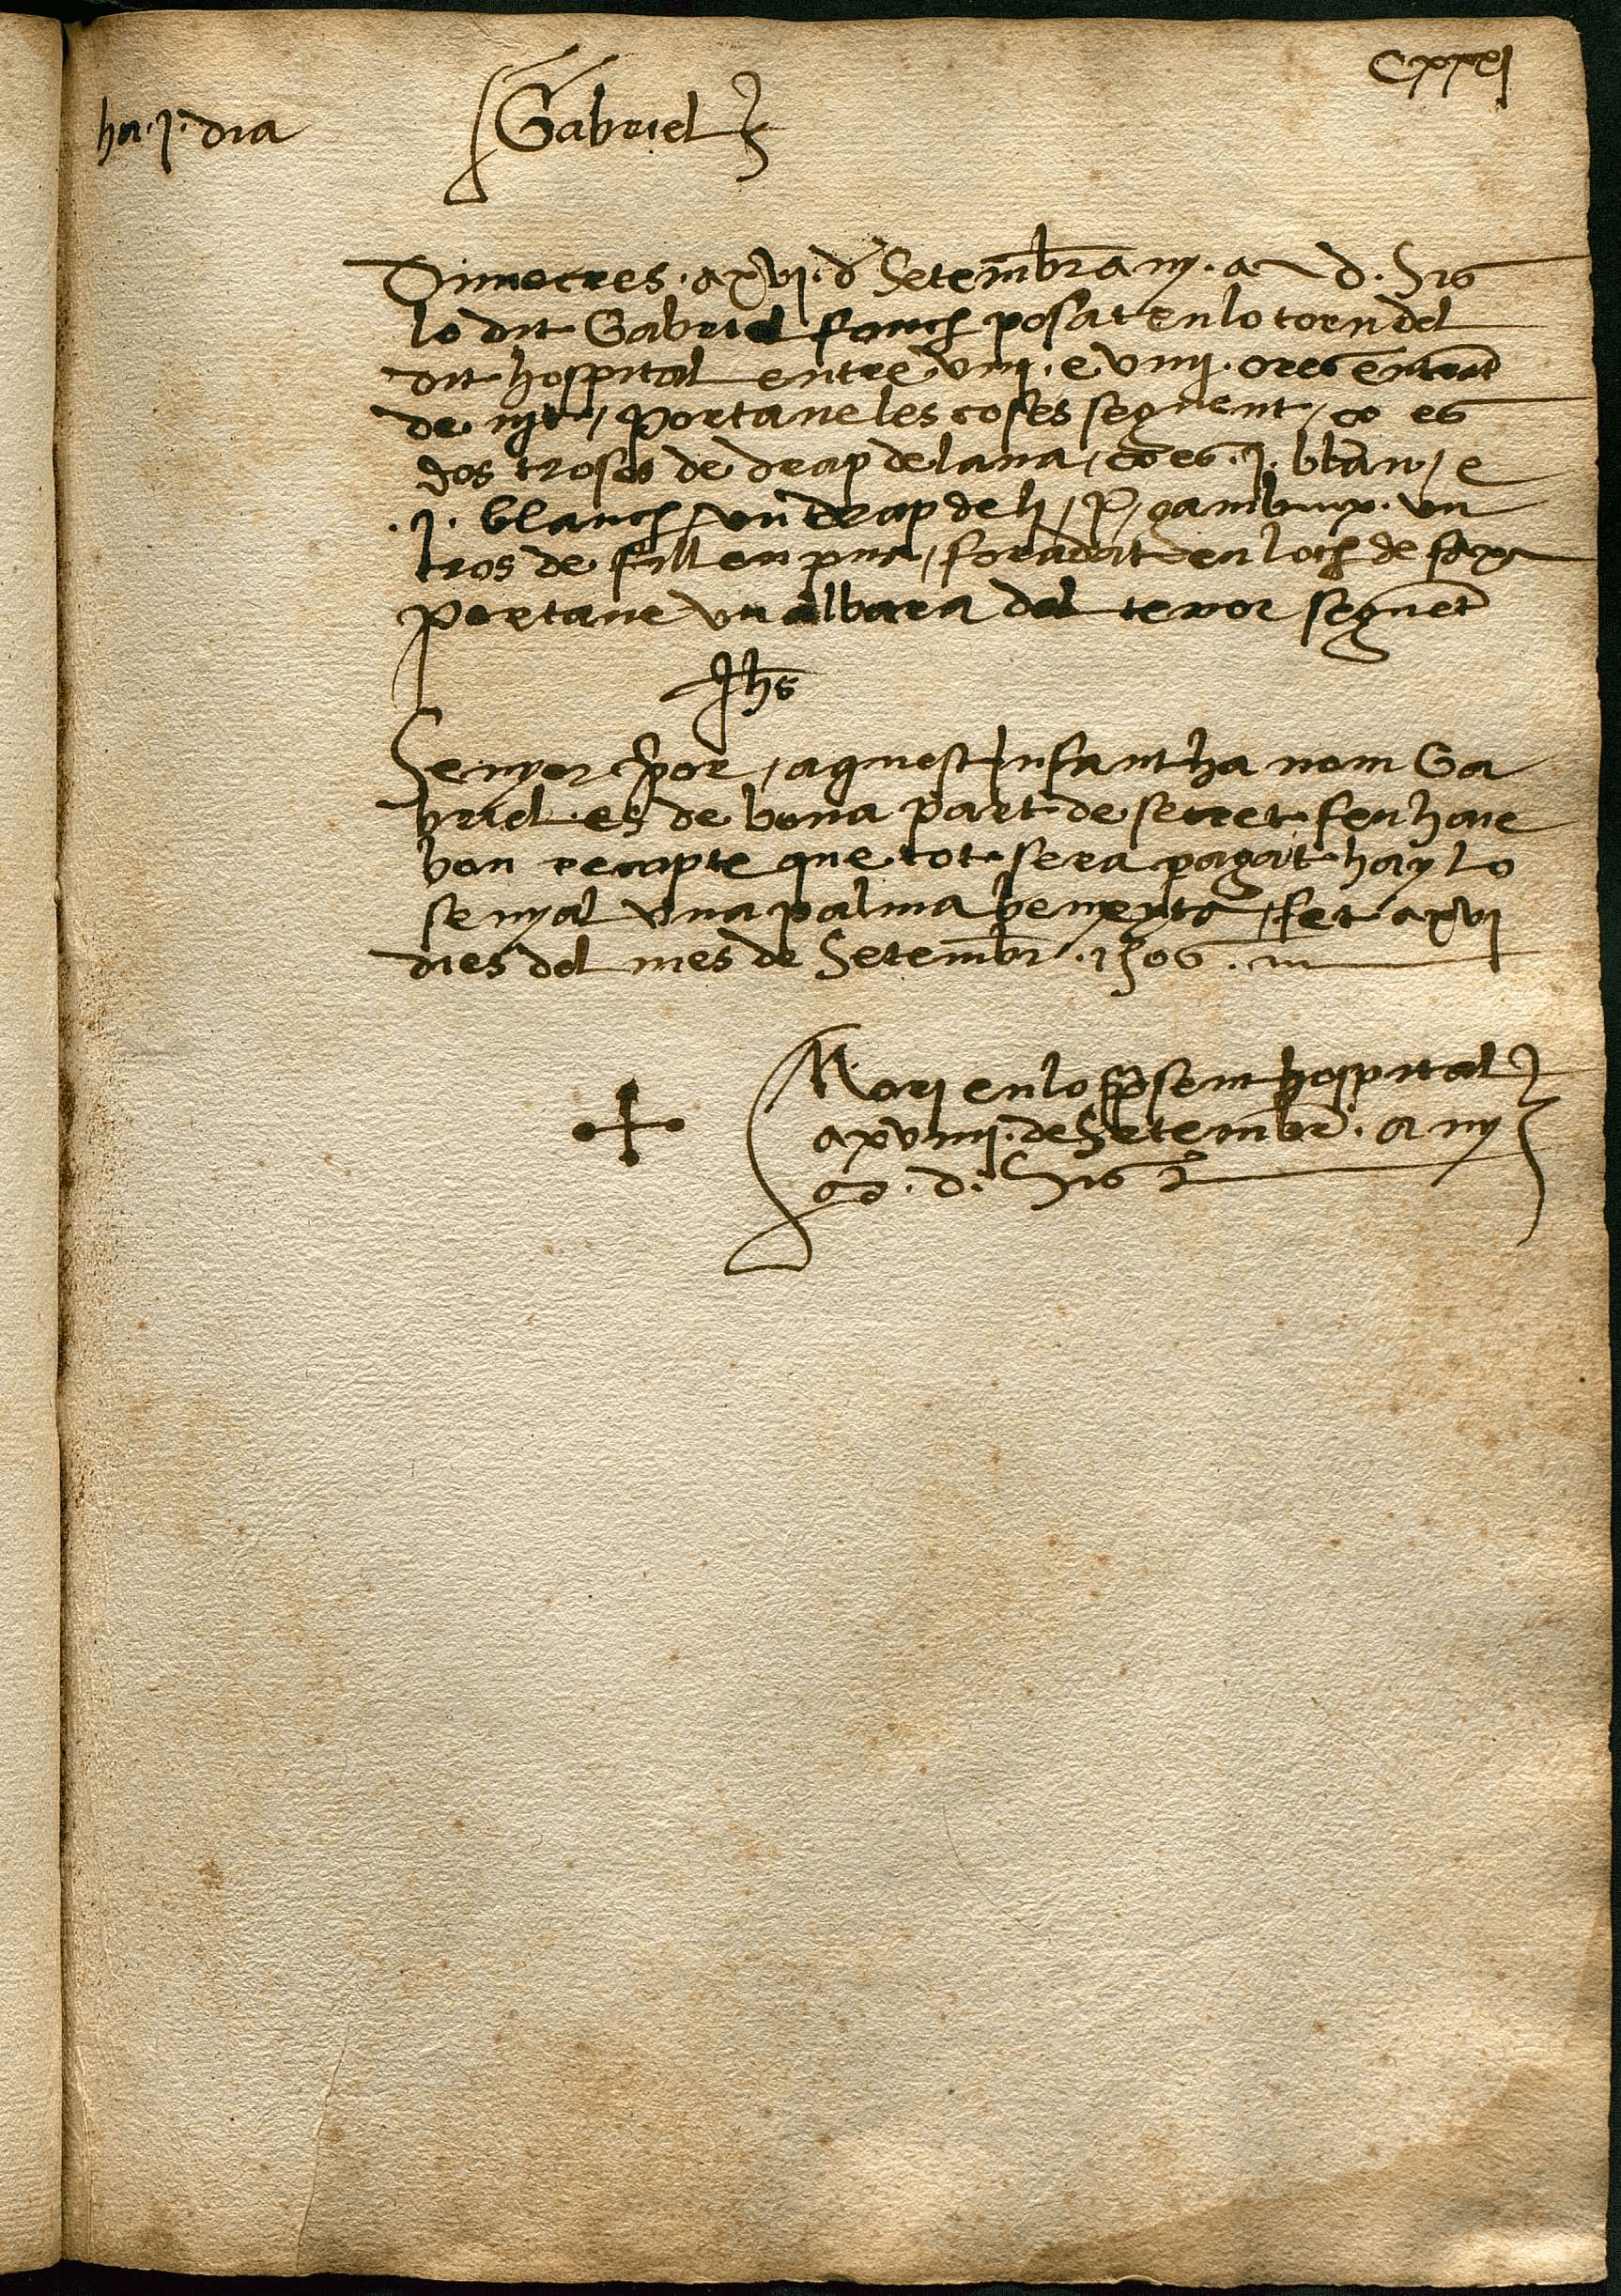 Cxxxj
ha .j. dia
Gabriel
Dimecres . a xvj . d Setembr any . d . Sis
lo dit Gabriel fonch posat en lo torn del
dit hospital entre viij . e viiij . ores entrant
de njt / portave les coses seguent / ço es
dos troses de drap de lana / ço es . j . blau / e
. j . blanch / un drap de li / j / gambux . un
tros de fill en pua / foradat en loch de faxa
portave un albara del tenor seguet
Jhs
Senyor prior / aquest Infant ha nom Ga
briel . es de bona part de secret feu have
bon recapte que tot sera pagat hay lo
senyal una palma beneyta / fet a xvj
dies del mes de Setembr . 1506 .
Mori en lo present hospital
a xviiij . de Setembre . any
. d . Sis